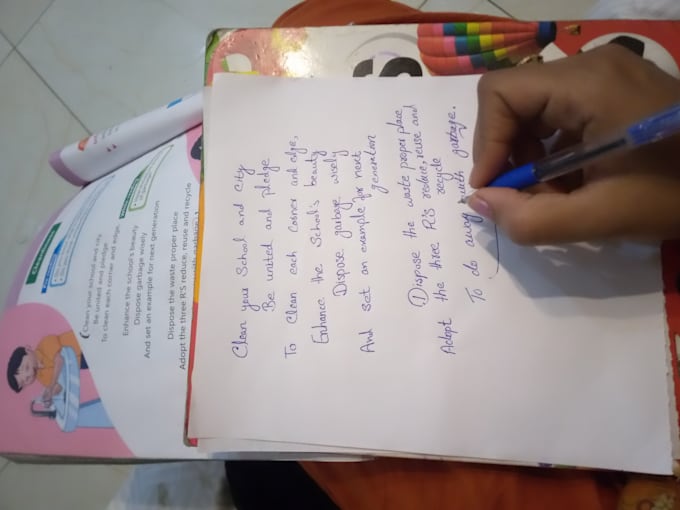 Cleanliness
Clean your school and city
Be united and pledge
To clean each corner and edge,
Enhance the school's beauty
Dispose garbage wisely
And set an example for next generation
Dispose the waste proper place
Adopt the three R'S reduce, reuse and recycle
Clean your School and City
Be united and pledge
To Clean each Corner and edge,
Enhance the School's beauty
Dispose garbage wisely
And set an example for next
generation
Dispose the waste proper place
Adopt the three R'S reduce, reuse and
recycle
To do away with garbage.